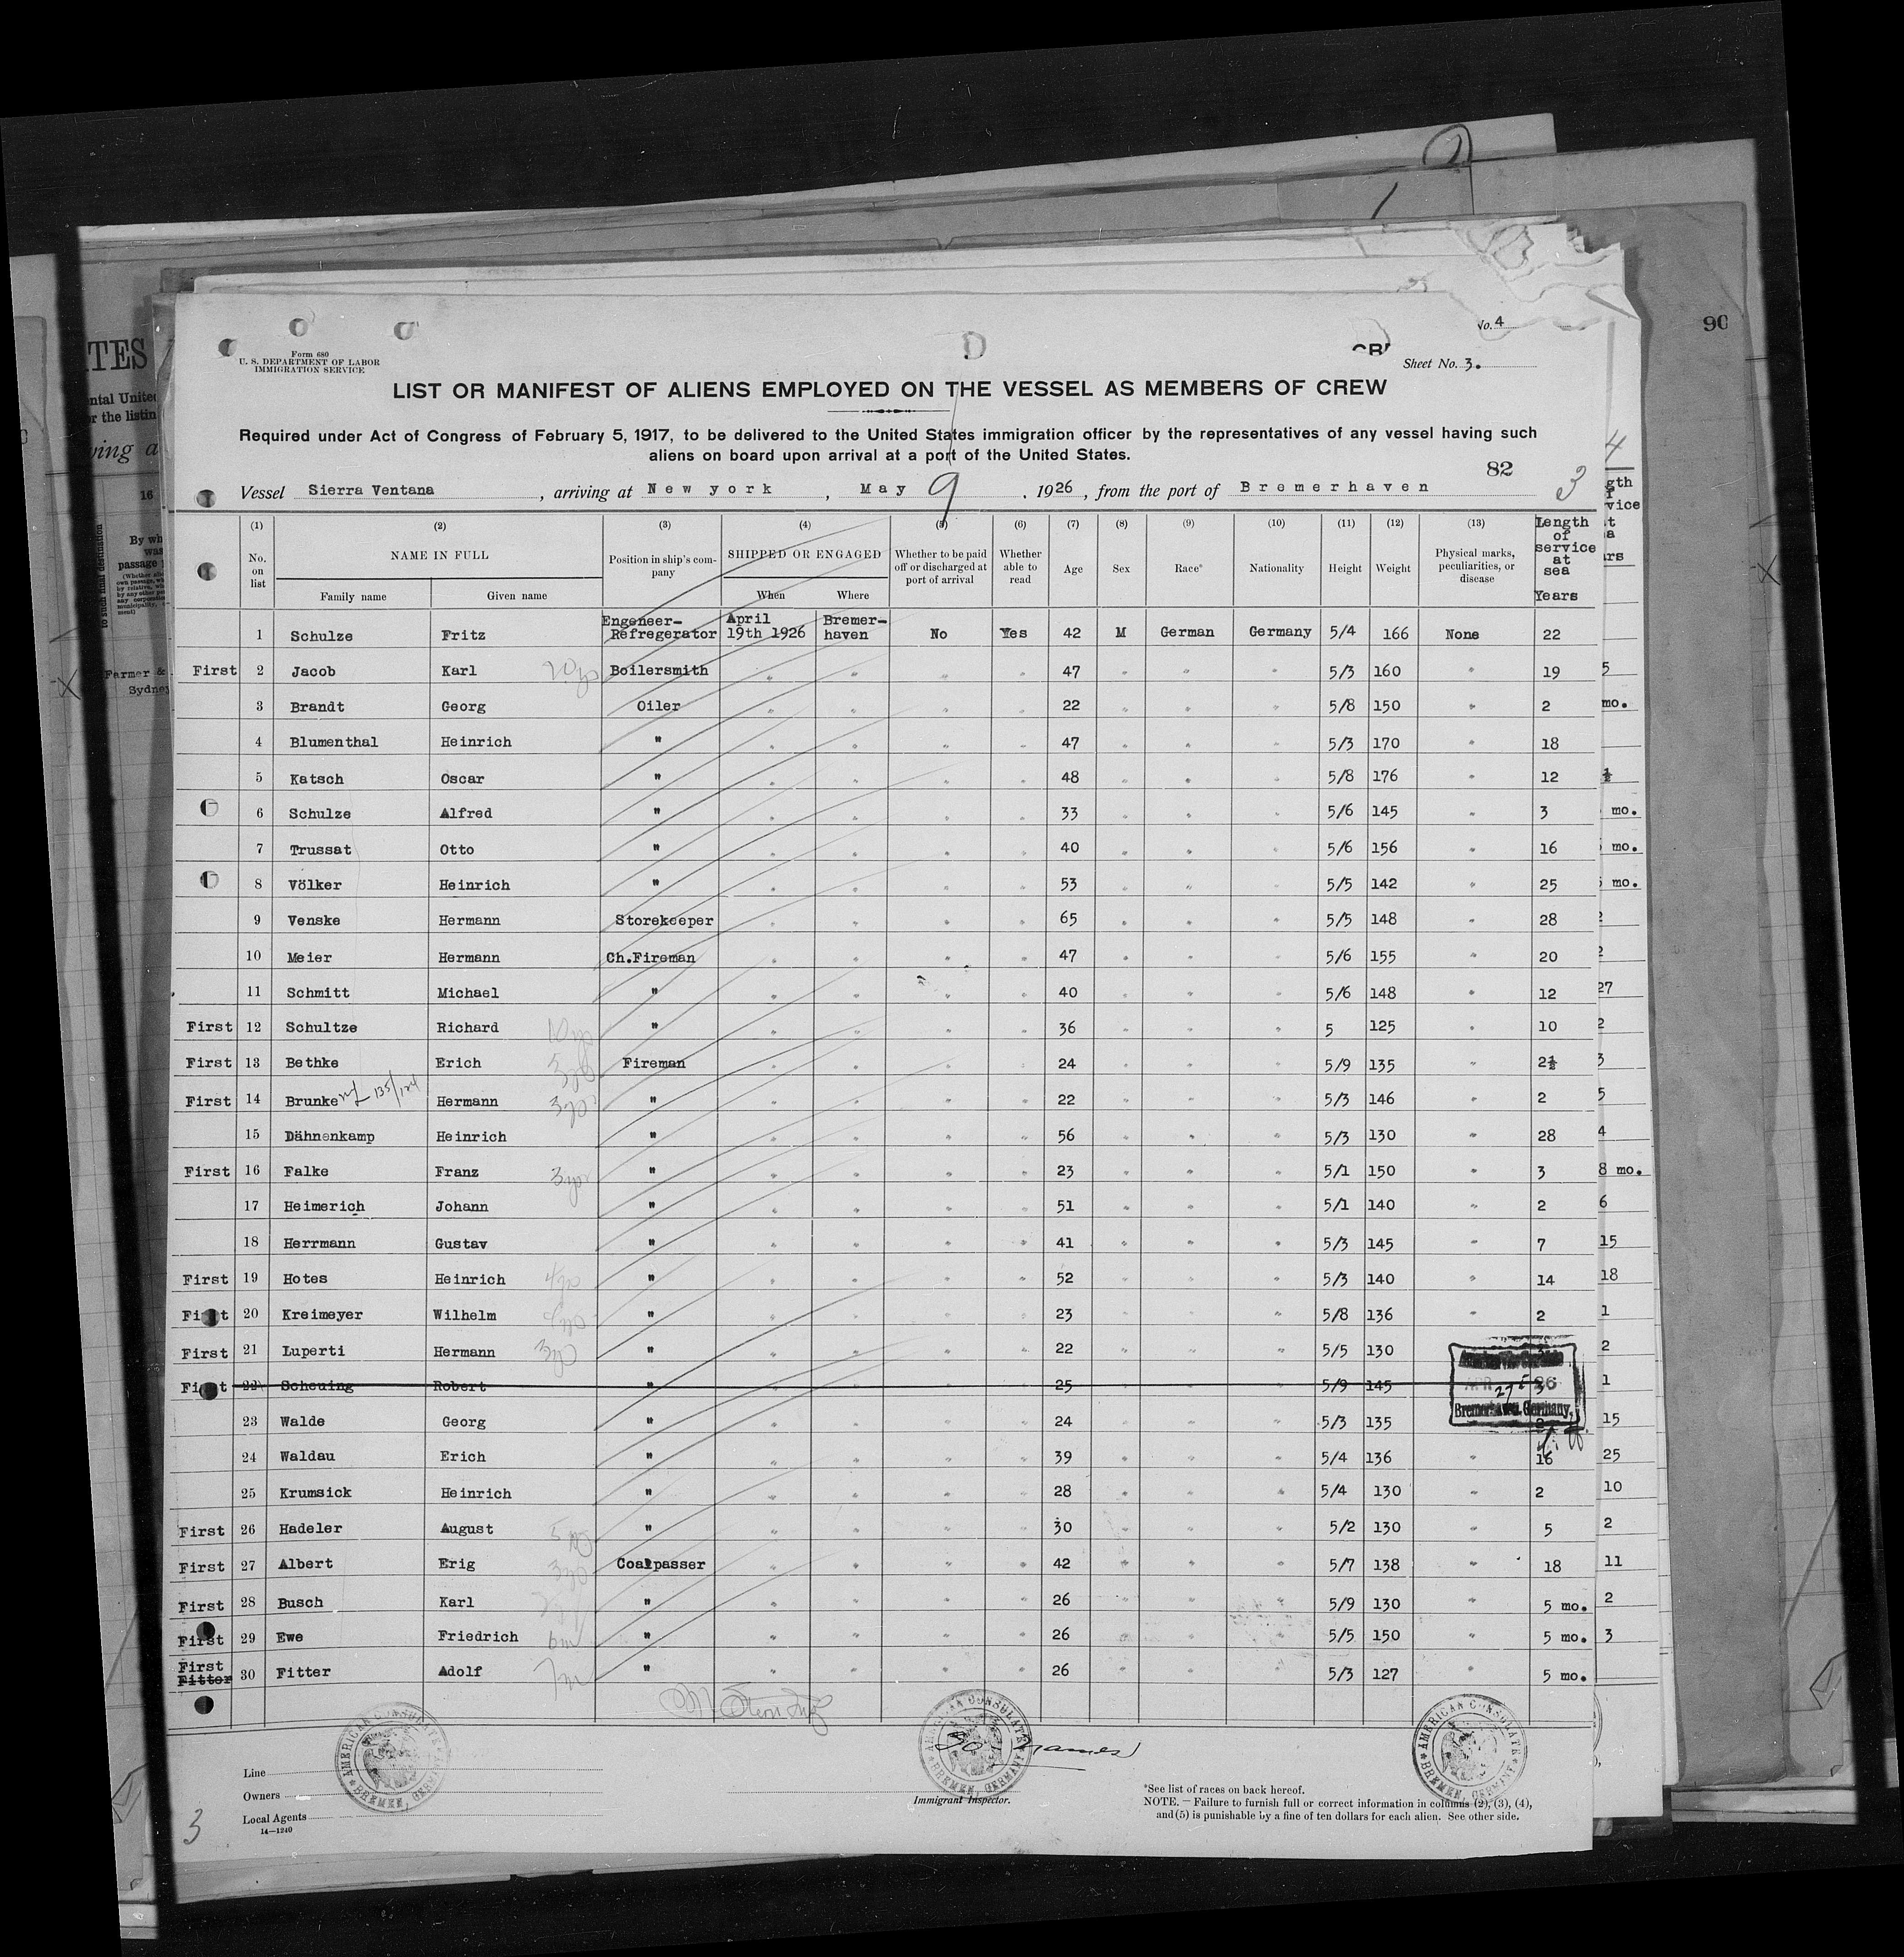 No. 4
Form 680
U. S. DEPARTMENT OF LABOR
IMMIGRATION SERVICE
Sheet No. 3.
LIST OR MANIFEST OF ALIENS EMPLOYED ON THE VESSEL AS MEMBERS OF CREW
Required under Act of Congress of February 5, 1917, to be delivered to the United States immigration officer by the representatives of any vessel having such
aliens on board upon arrival at a port of the United States.
82
Vessel Sierra Ventana , arriving at New york , May 9 , 1926 , from the port of Bremerhaven 3
(1) (2) (3) (4) (5) (6) (7) (8) (9) (10) (11) (12) (13)
No. on list NAME IN FULL Family name Given name Position in ship's company SHIPPED OR ENGAGED When Where Whether to be paid off or discharged at port of arrival Whether able to read Age Sex Race* Nationality Height Weight Physical marks, peculiarities, or disease Length of service at sea Years
1 Schulze Fritz Engeneer-Refregerator April 19th 1926 Bremer-haven No Yes 42 M German Germany 5/4 166 None 22
First 2 Jacob Karl Boilersmith " " " " 47 " " " 5/3 160 " 19
3 Brandt Georg Oiler " " " " 22 " " " 5/8 150 " 2
4 Blumenthal Heinrich " " " " " 47 " " " 5/3 170 " 18
5 Katsch Oscar " " " " " 48 " " " 5/8 176 " 12
6 Schulze Alfred " " " " " 33 " " " 5/6 145 " 3
7 Trussat Otto " " " " " 40 " " " 5/6 156 " 16
8 Völker Heinrich " " " " " 53 " " " 5/5 142 " 25
9 Venske Hermann Storekeeper " " " " 65 " " " 5/5 148 " 28
10 Meier Hermann Ch.Fireman " " " " 47 " " " 5/6 155 " 20
11 Schmitt Michael " " " " " 40 " " " 5/6 148 " 12
First 12 Schultze Richard " " " " " 36 " " " 5 125 " 10
First 13 Bethke Erich Fireman " " " " 24 " " " 5/9 135 " 2½
First 14 Brunke Hermann " " " " " 22 " " " 5/3 146 " 2
15 Dähnenkamp Heinrich " " " " " 56 " " " 5/3 130 " 28
First 16 Falke Franz 3 yrs " " " " " 23 " " " 5/1 150 " 3
17 Heimerich Johann " " " " " 51 " " " 5/1 140 " 2
18 Herrmann Gustav " " " " " 41 " " " 5/3 145 " 7
First 19 Hotes Heinrich " " " " " 52 " " " 5/3 140 " 14
First 20 Kreimeyer Wilhelm " " " " " 23 " " " 5/8 136 " 2
First 21 Luperti Hermann " " " " " 22 " " " 5/5 130
First 22 Scheuing Robert " " " " " 25 " " " 5/9 145
APR 27 26
Bremerhaven, Germany,
23 Walde Georg " " " " " 24 " " " 5/3 135 2
24 Waldau Erich " " " " " 39 " " " 5/4 136 " 16
25 Krumsick Heinrich " " " " " 28 " " " 5/4 130 " 2
First 26 Hadeler August " " " " " 30 " " " 5/2 130 " 5
First 27 Albert Erig Coalpasser " " " " 42 " " " 5/7 138 " 18
First 28 Busch Karl " " " " " 26 " " " 5/9 130 " 5 mo.
First 29 Ewe Friedrich 6m " " " " " 26 " " " 5/5 150 " 5 mo.
First Fitter 30 Fitter Adolf 7m " " " " " 26 " " " 5/3 127 " 5 mo.
AMERICAN CONSULATE BREMEN, GERMANY
AMERICAN CONSULATE BREMEN, GERMANY
AMERICAN CONSULATE BREMEN, GERMANY
names
Line
Owners
Local Agents
14—1240
Immigrant Inspector.
*See list of races on back hereof.
NOTE. — Failure to furnish full or correct information in columns (2), (3), (4),
and (5) is punishable by a fine of ten dollars for each alien. See other side.
3
90